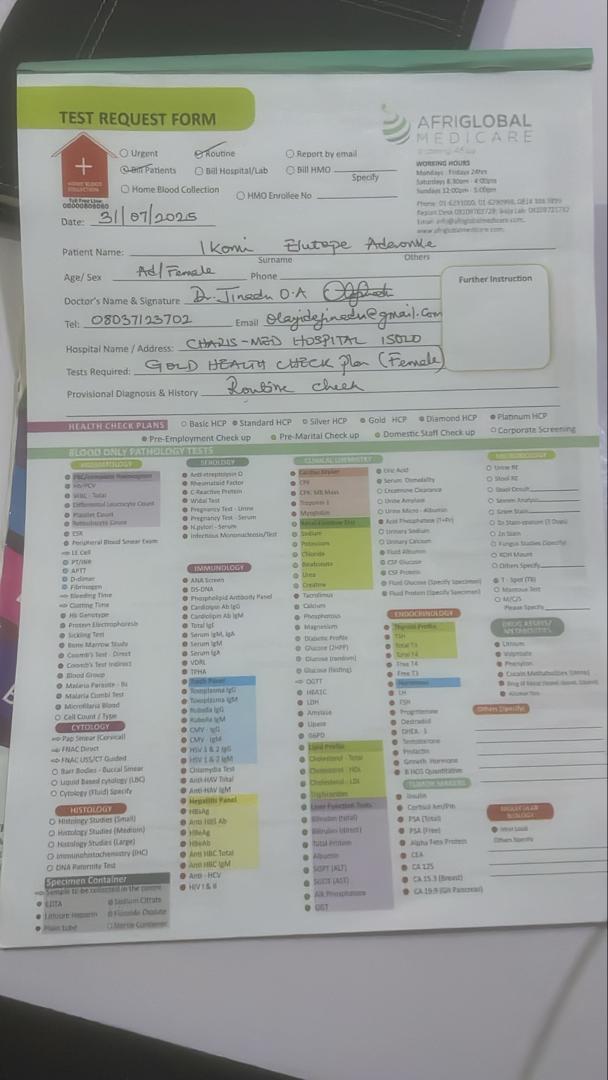 TEST REQUEST FORM
AFRIGLOBAL
MEDICARE
Urgent Routine Report by email
Bill Patients Bill Hospital/Lab Bill HMO
Specify
Home Blood Collection HMO Enrollee No
HOME BLOOD
COLLECTION
Toll Free Line
WORKING HOURS
Mondays - Fridays 24hrs
Saturdays 8:30am - 4:00pm
Sundays 12:00pm - 5:00pm
www.afriglobalmedicare.com
Date: 31/07/2025
Patient Name: Ikomi Aderonke
Surname Others
Age/ Sex Ad/Female Phone
Further Instruction
Doctor's Name & Signature Dr. Jinadu O.A
Tel: 08037123702 Email olajidejinadu@gmail.com
Hospital Name / Address: CHARIS-MED HOSPITAL ISOLO
Tests Required: GOLD HEALTH CHECK Plan (Female)
Provisional Diagnosis & History Routine check
HEALTH CHECK PLANS Basic HCP Standard HCP Silver HCP Gold HCP Diamond HCP Platinum HCP
Pre-Employment Check up Pre-Marital Check up Domestic Staff Check up Corporate Screening
BLOOD ONLY PATHOLOGY TESTS
HAEMATOLOGY
WBC - Total
Differential Leucocyte Count
Platelet Count
Reticulocyte Count
ESR
Peripheral Blood Smear Exam
LE Cell
PT/INR
APTT
D-dimar
Fibrinogen
Bleeding Time
Clotting Time
Hb Genotype
Protein Electrophoresis
Sickling Test
Bone Marrow Study
Coomb's Test - Direct
Coomb's Test Indirect
Blood Group
Malaria Parasite - Bs
Malaria Combi Test
Microfilaria Blood
Cell Count / Type
CYTOLOGY
Pap Smear (Cervical)
FNAC Direct
FNAC USS/CT Guided
Barr Bodies - Buccal Smear
Liquid Based cytology (LBC)
Cytology (Fluid) Specify
HISTOLOGY
Histology Studies (Small)
Histology Studies (Medium)
Histology Studies (Large)
Immunohistochemistry (IHC)
DNA Paternity Test
Specimen Container
Sample to be collected in the centre
EDTA Sodium Citrate
Lithium Heparin Fluoride Oxalate
Plain tube Sterile Container
SEROLOGY
Anti-streptolysin O
Rheumatoid Factor
C-Reactive Protein
Widal Test
Pregnancy Test - Urine
Pregnancy Test - Serum
H.pylori - Serum
Infectious Mononucleosis/Test
IMMUNOLOGY
ANA Screen
DS-DNA
Phospholipid Antibody Panel
Cardiolipin Ab IgG
Cardiolipin Ab IgM
Total IgE
Serum IgM, IgA
Serum IgM
Serum IgA
VDRL
TPHA
Toxoplasma IgG
Toxoplasma IgM
Rubella IgG
Rubella IgM
CMV - IgG
CMV - IgM
HSV 1 & 2 IgG
HSV 1 & 2 IgM
Chlamydia Test
Anti-HAV Total
Anti-HAV IgM
Hepatitis Panel
HBsAg
Anti HBS Ab
HBeAg
HBeAb
Anti HBC Total
Anti HBC IgM
Anti - HCV
HIV I & II
CLINICAL CHEMISTRY
CPK
CPK. MB Mass
Troponin I
Myoglobin
Sodium
Potassium
Chloride
Bicarbonate
Urea
Creatine
Tacrolimus
Calcium
Phosphorous
Magnesium
Diabetic Profile
Glucose (2HPP)
Glucose (random)
Glucose (fasting)
OGTT
HBA1C
LDH
Amylase
Lipase
G6PD
Lipid Profile
Cholesterol - Total
Cholesterol - HDL
Cholesterol - LDL
Triglycerides
Liver Function Tests
Bilirubin (total)
Bilirubin (direct)
Total Protein
Albumin
SGPT (ALT)
SGOT (AST)
Alk Phosphatase
GGT
Uric Acid
Serum Osmolality
Creatinine Clearance
Urine Amylase
Urine Micro - Albumin
Urinary Sodium
Urinary Calcium
Fluid Albumin
CSF Glucose
CSF Protein
Fluid Glucose (Specify Specimen)
Fluid Protein (Specify Specimen)
ENDOCRINOLOGY
Thyroid Profile
TSH
Total T3
Total T4
Free T4
Free T3
Hormones
LH
FSH
Progesterone
Oestradiol
DHEA- S
Testosterone
Prolactin
Growth Hormone
B HCG Quantitative
TUMOR MARKERS
Insulin
Cortisol Am/Pm
PSA (Total)
PSA (Free)
Alpha Feto Protein
CEA
CA 125
CA 15.3 (Breast)
CA 19.9 (GIt Pancreas)
MICROBIOLOGY
Urine RE
Stool RE
KOH Mount
Others Specify
T - Spot (TB)
Mantoux Test
M/C/S
Please Specify
DRUG ASSAYS/
Lithium
Valproate
Phenytoin
Others (Specify)
MOLECULAR
BIOLOGY
Viral Load
Others Specify